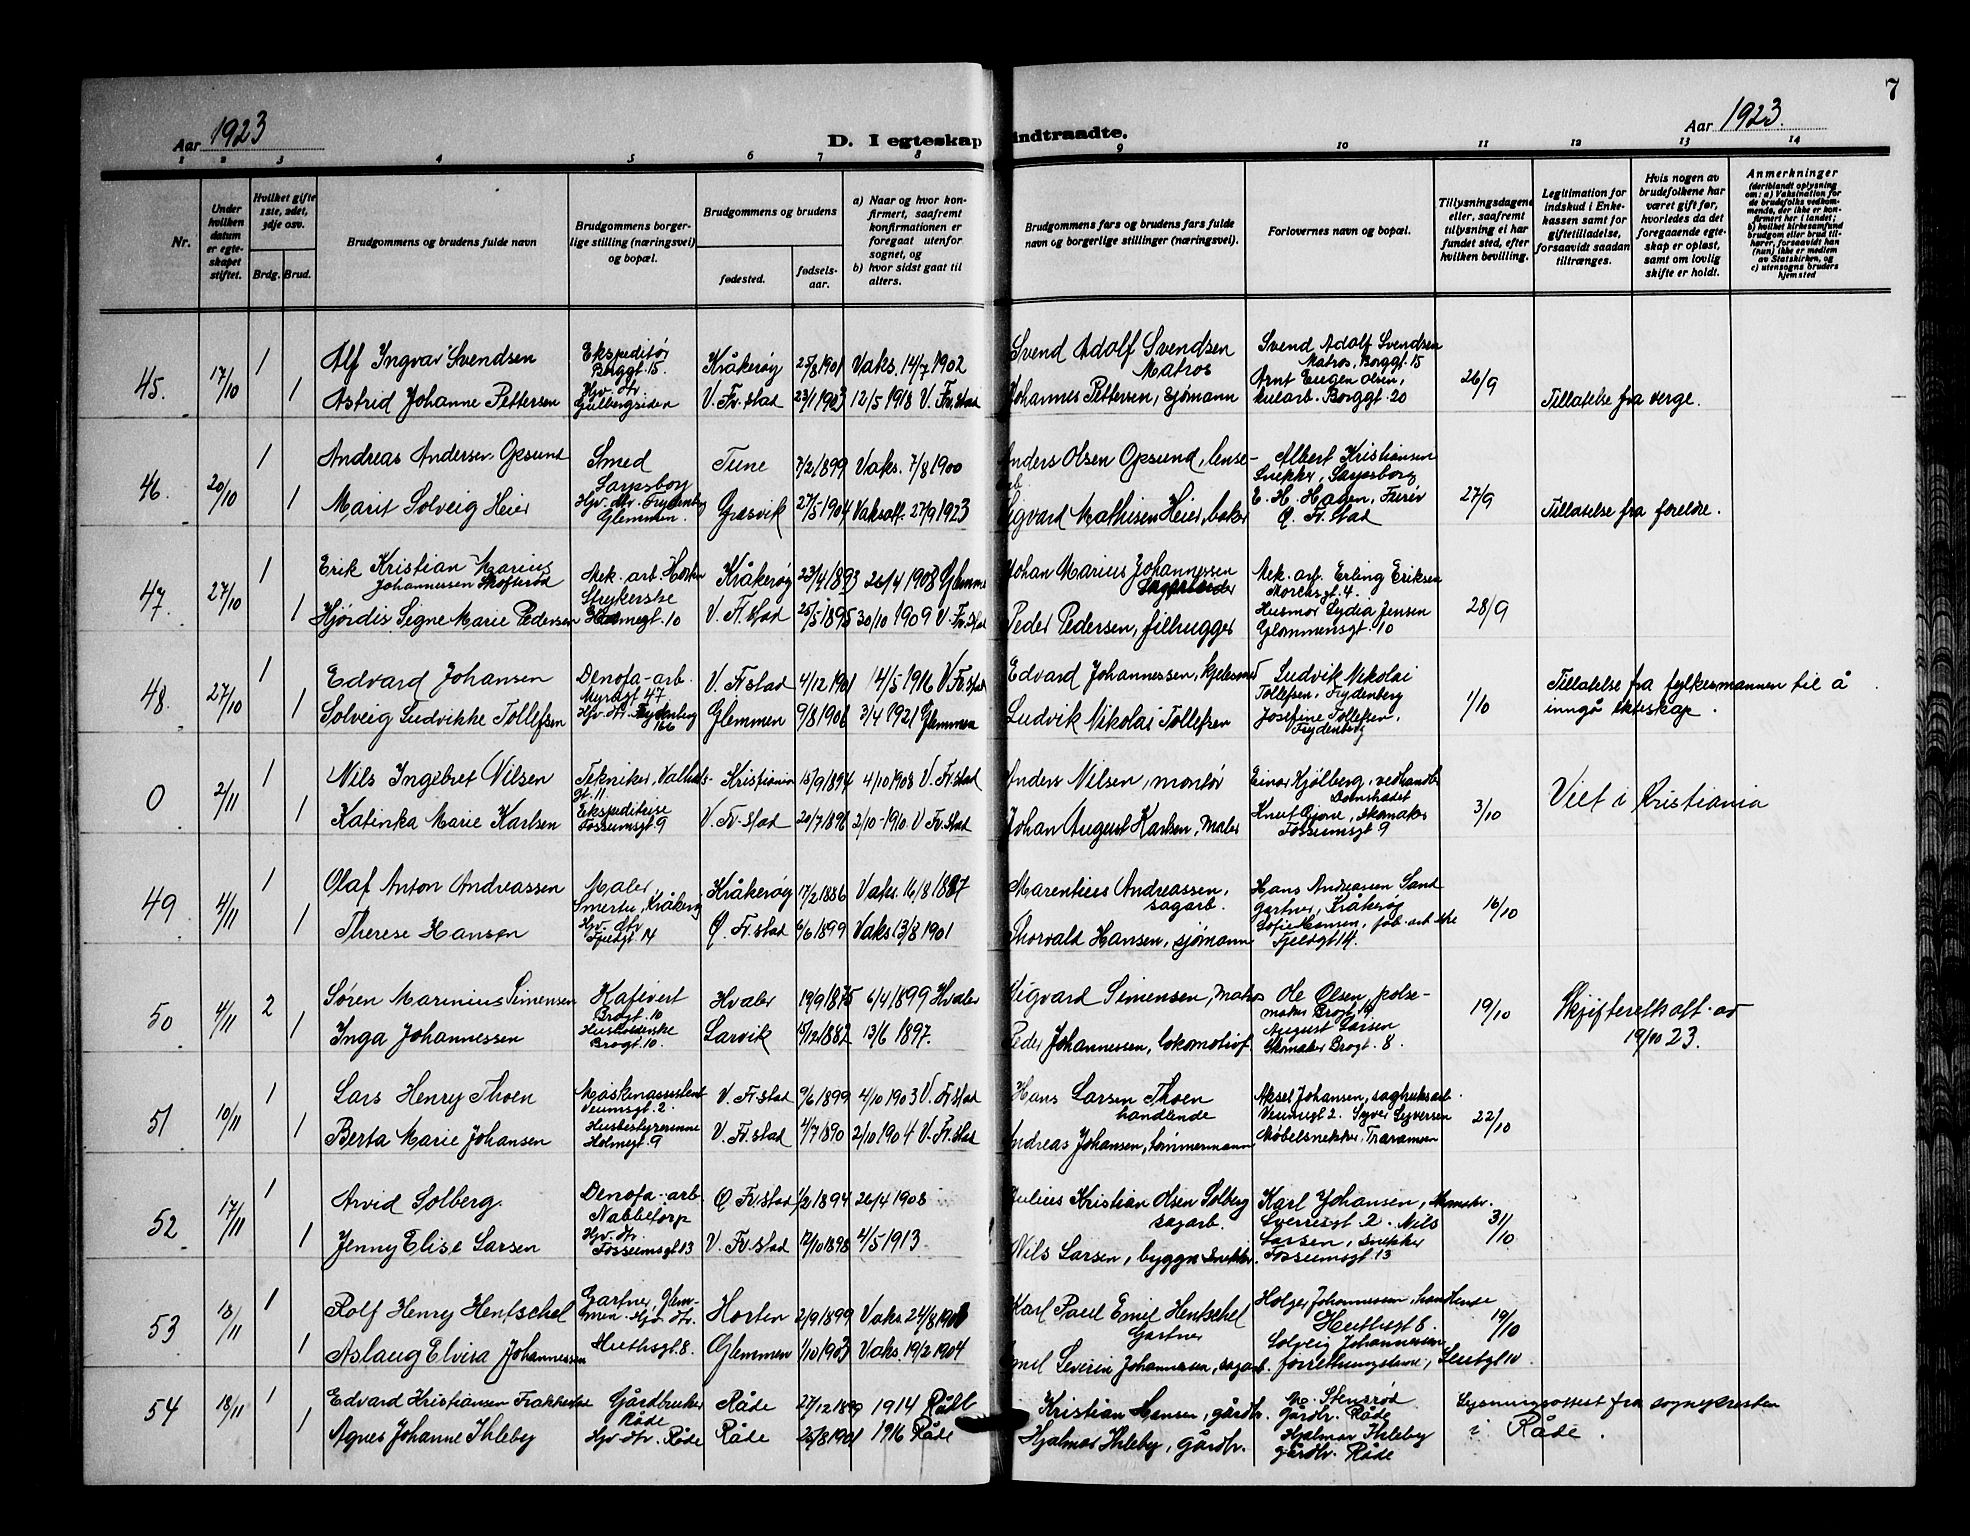 7
Aar 1923
D. I egteskap indtraadte.
Aar 1923.
1 2 3 4 5 6 7 8 9 10 11 12 13 14
Nr.
Under hvilken datum er egteskapet stiftet.
Hvilket gifte 1ste, 2det, 3dje osv.
Brdg. Brud.
Brudgommens og brudens fulde navn
Brudgommens borgerlige stilling (næringsvei) og bopæl.
Brudgommens og brudens
fødested.
fødselsaar.
a) Naar og hvor konfirmert, saafremt konfirmationen er foregaat utenfor sognet, og
b) hvor sidst gaat til alters.
Brudgommens fars og brudens fars fulde navn og borgerlige stillinger (næringsvei).
Forlovernes navn og bopæl.
Tillysningsdagene eller, saafremt tillysning ei har fundet sted, efter hvilken bevilling.
Legitimation for indskud i Enkekassen samt for giftetilladelse, forsaavidt saadan tiltrænges.
Hvis nogen av brudefolkene har været gift før, hvorledes da det foregaaende egteskap er opløst, samt om lovlig skifte er holdt.
Anmerkninger
(deriblandt oplysning om: a) Vaksination for de brudefolks vedkommende, der ikke er konfirmert her i landet; b) hvilket kirkesamfund brudgom eller brud tilhører, forsaavidt han (hun) ikke er medlem av Statskirken, og c) utensogns bruders hjemsted
45. 17/10 1 Alf Ingvar Svendsen Ekspeditør Borggt. 15. Kråkerøy 25/8 1901 Vaks. 14/7 1902 Svend Adolf Svendsen Matros Svend Adolf Svendsen Matros, Borggt. 15 26/9
1 Astrid Johanne Pettersen Hjv. dtr. Gulbergsiden V. Fr.stad 23/1 1903 12/5 1918 V. Fr.stad Johannes Pettersen, sjømann Arnt Eugen Olsen, Borggt. 20 Tillatelse fra verge.
46. 20/10 1 Andreas Andersen Opsund Smed Sarpsborg Tune 7/2 1899 Vaks. 7/8 1900 Anders Olsen Opsund, lense- Albert Kristiansen Snekker, Sarpsborg 27/9
1 Marit Solveig Heier Hjv. dtr. Frydenberg Glemmen. Gresvik 27/5 1904 Vaksatt. 27/9 1923 Sigvard Mathisen Heier, baker E. H. Hagen, Ø. Fr.stad Tillatelse fra foreldre.
47. 27/10 1 Erik Kristian Marius Johannessen Skofterød Mek. arb. Horten Kråkerøy 23/4 1893 26/4 1908 Glemmen Johan Marius Johannessen Sagarbeider Mek. arb. Erling Eriksen 28/9
1 Hjørdis Signe Marie Pedersen Strykerske Holmegt. 10 V. Fr.stad 25/5 1895 30/10 1909 V. Fr.stad Peder Pedersen, filhugger Husmor Lydia Jensen Glommensgt. 10
48. 27/10 1 Edvard Johansen Denofa-arb. Myragt 47 V. Fr.stad 4/12 1901 14/5 1916 V. Fr.stad Edvard Johannessen, kjelesmed Ludvik Nikolai Tollefsen, Frydenberg 1/10 Tillatelse fra fylkesmannen til å inngå ekteskap.
1 Solveig Ludvikke Tollefsen Hjv. dtr. Frydenberg 166 Glemmen 9/8 1906 3/4 1921 Glemmen Ludvik Nikolai Tollefsen Josefine Tollefsen, Frydenberg
0 2/11 1 Nils Ingebret Nilsen Tekniker, Valhalsgt. 11. Kristiania 15/9 1894 4/10 1908 V. Fr.stad Anders Nilsen, montør Einar Kjølberg, vedhandl. 3/10 Viet i Kristiania
1 Katinka Marie Karlsen Ekspeditrise Fossumsgt 9 V. Fr.stad 20/7 1896 2/10-1910. V. Fr.stad Johan August Karlsen, Maler Knut Gjone, skomaker Fossumsgt 9
49 4/11 1 Olaf Anton Andreassen Maler, Smertu, Kråkerøy Kråkerøy 17/2 1886 Vaks. 16/8 1887 Marentius Andreassen, sagarb. Hans Andreassen Sand Gartner, Kråkerøy 16/10
1 Therese Hansen Hjv. dtr. Fjeldgt 14 Ø. Fr.stad 6/6 1899 Vaks 13/8 1901 Thorvald Hansen, sjømann Sofie Hansen, fab. arb.ske Fjeldgt 14.
50 4/11 2 Søren Marinius Simensen Kafevert Brogt. 10 Hvaler 19/9 1875 6/4 1899 Hvaler Sigvard Simensen, Matros Ole Olsen, pølsemaker Brogt. 19 19/10 Skifteretts att. av 19/10 23.
1 Inga Johannessen Husholderske Brogt. 10. Larvik 15/12 1882 13/6 1897. Peder Johannessen, lokomotivf. August Larsen Skomaker Brogt. 8.
51 10/11 1 Lars Henry Thoen Maskinassistent Veumsgt. 2. V. Fr.stad 9/6 1899 4/10 1903 V. Fr.stad Hans Larsen Thoen handlende Aksel Johansen, sagbruksarb. Veumsgt 2. 22/10
1 Berta Marie Johansen Husbestyrerinne Holmegt. 9 V. Fr.stad 4/7 1890 2/10 1904 V. Fr.stad Andreas Johansen, tømmermann Syver Syversen Møbelsnekker, Traramen
52 17/11 1 Arvid Solberg. Denofa-arb. Nabbetorp Ø Fr.stad 1/2 1894 26/4 1908 Julius Kristian Olsen Solberg sagarb. Karl Johansen, skomaker. Sverresgt 2. 31/10
1 Jenny Elise Larsen Hjv. dtr. Fossumsgt 13 V. Fr.stad 17/10 1898 4/5 1913. Nils Larsen, byggn. snekker. Nils Larsen, snekker Fossumsgt. 13
53 18/11 1 Rolf Henry Hentschel Gartner, Glemmen. Horten 2/9 1899 Vaks. 24/8 Karl Paul Emil Hentschel Gartner Holger Johannessen, handlende Huthsgt 8. 19/10
1 Aslaug Elvira Johannessen Hjv. dtr. Huthsgt. 8. Glemmen 1/10 1903 Vaks. 19/2 1904 Emil Severin Johannessen, sagarb. Solveig Johannessen
54 18/11 1 Edvard Kristiansen Gårdbruker Råde Råde 27/12 1899 1914 Råde Kristian Hansen, gårdbr. Stensrød Gårdbr. Råde Lysningsattest fra sognepresten i Råde.
1 Agnes Johanne Ihleby Hjv. dtr. Råde Råde 25/8 1901 1916 Råde Hjalmar Ihleby, gårdbr. Hjalmar Ihleby gårdbr. Råde